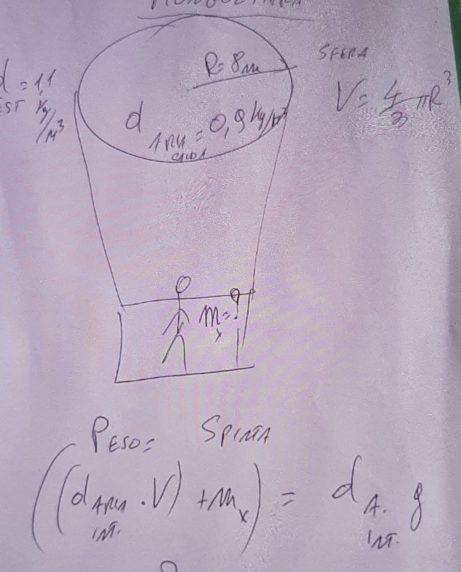 MONGOLFIERA
d = 1,1
EST Kg/m³
R = 8m
SFERA
V = 4/3 πR³
d ARIA CALDA = 0,9 kg/m³
mx = ?
PESO = SPINTA
((d ARIA INT. · V) + mx) = d A. INT. g